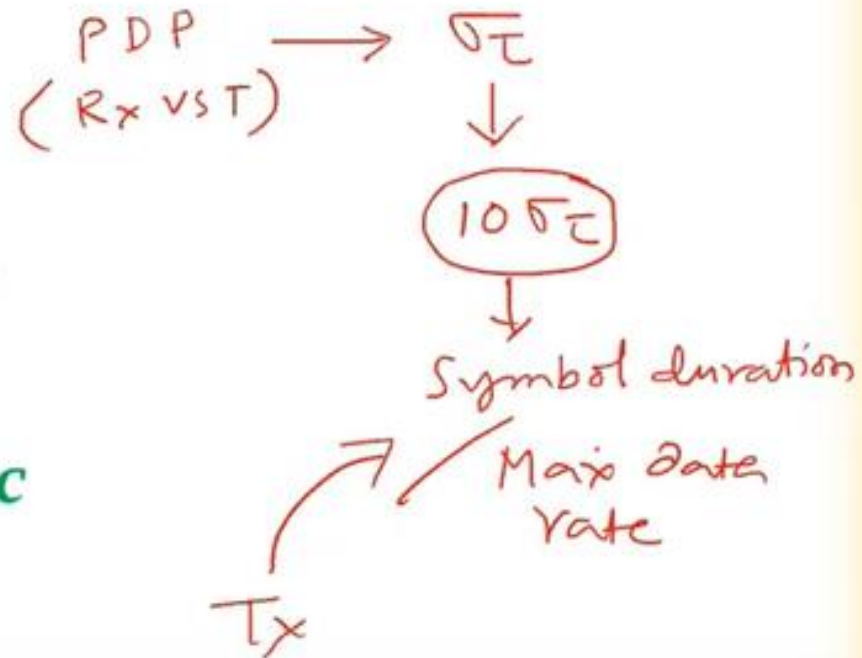 PDP → στ
(Rx vs T)
↓
10 στ
↓
Symbol duration
Max data
rate
c
Tx